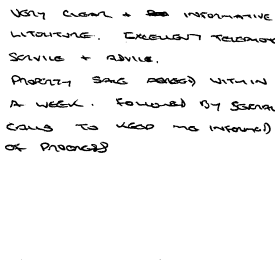 VERY CLEAR + INFORMATIVE
LITERTURE. EXCELLENT TELEPHON
SERVICE + ADVICE.
PROPERTY SALE AGREED WITHIN
A WEEK. FOLLOWED BY SEVERAL
CALLS TO KEEP ME INFORMED
OF PROGRESS